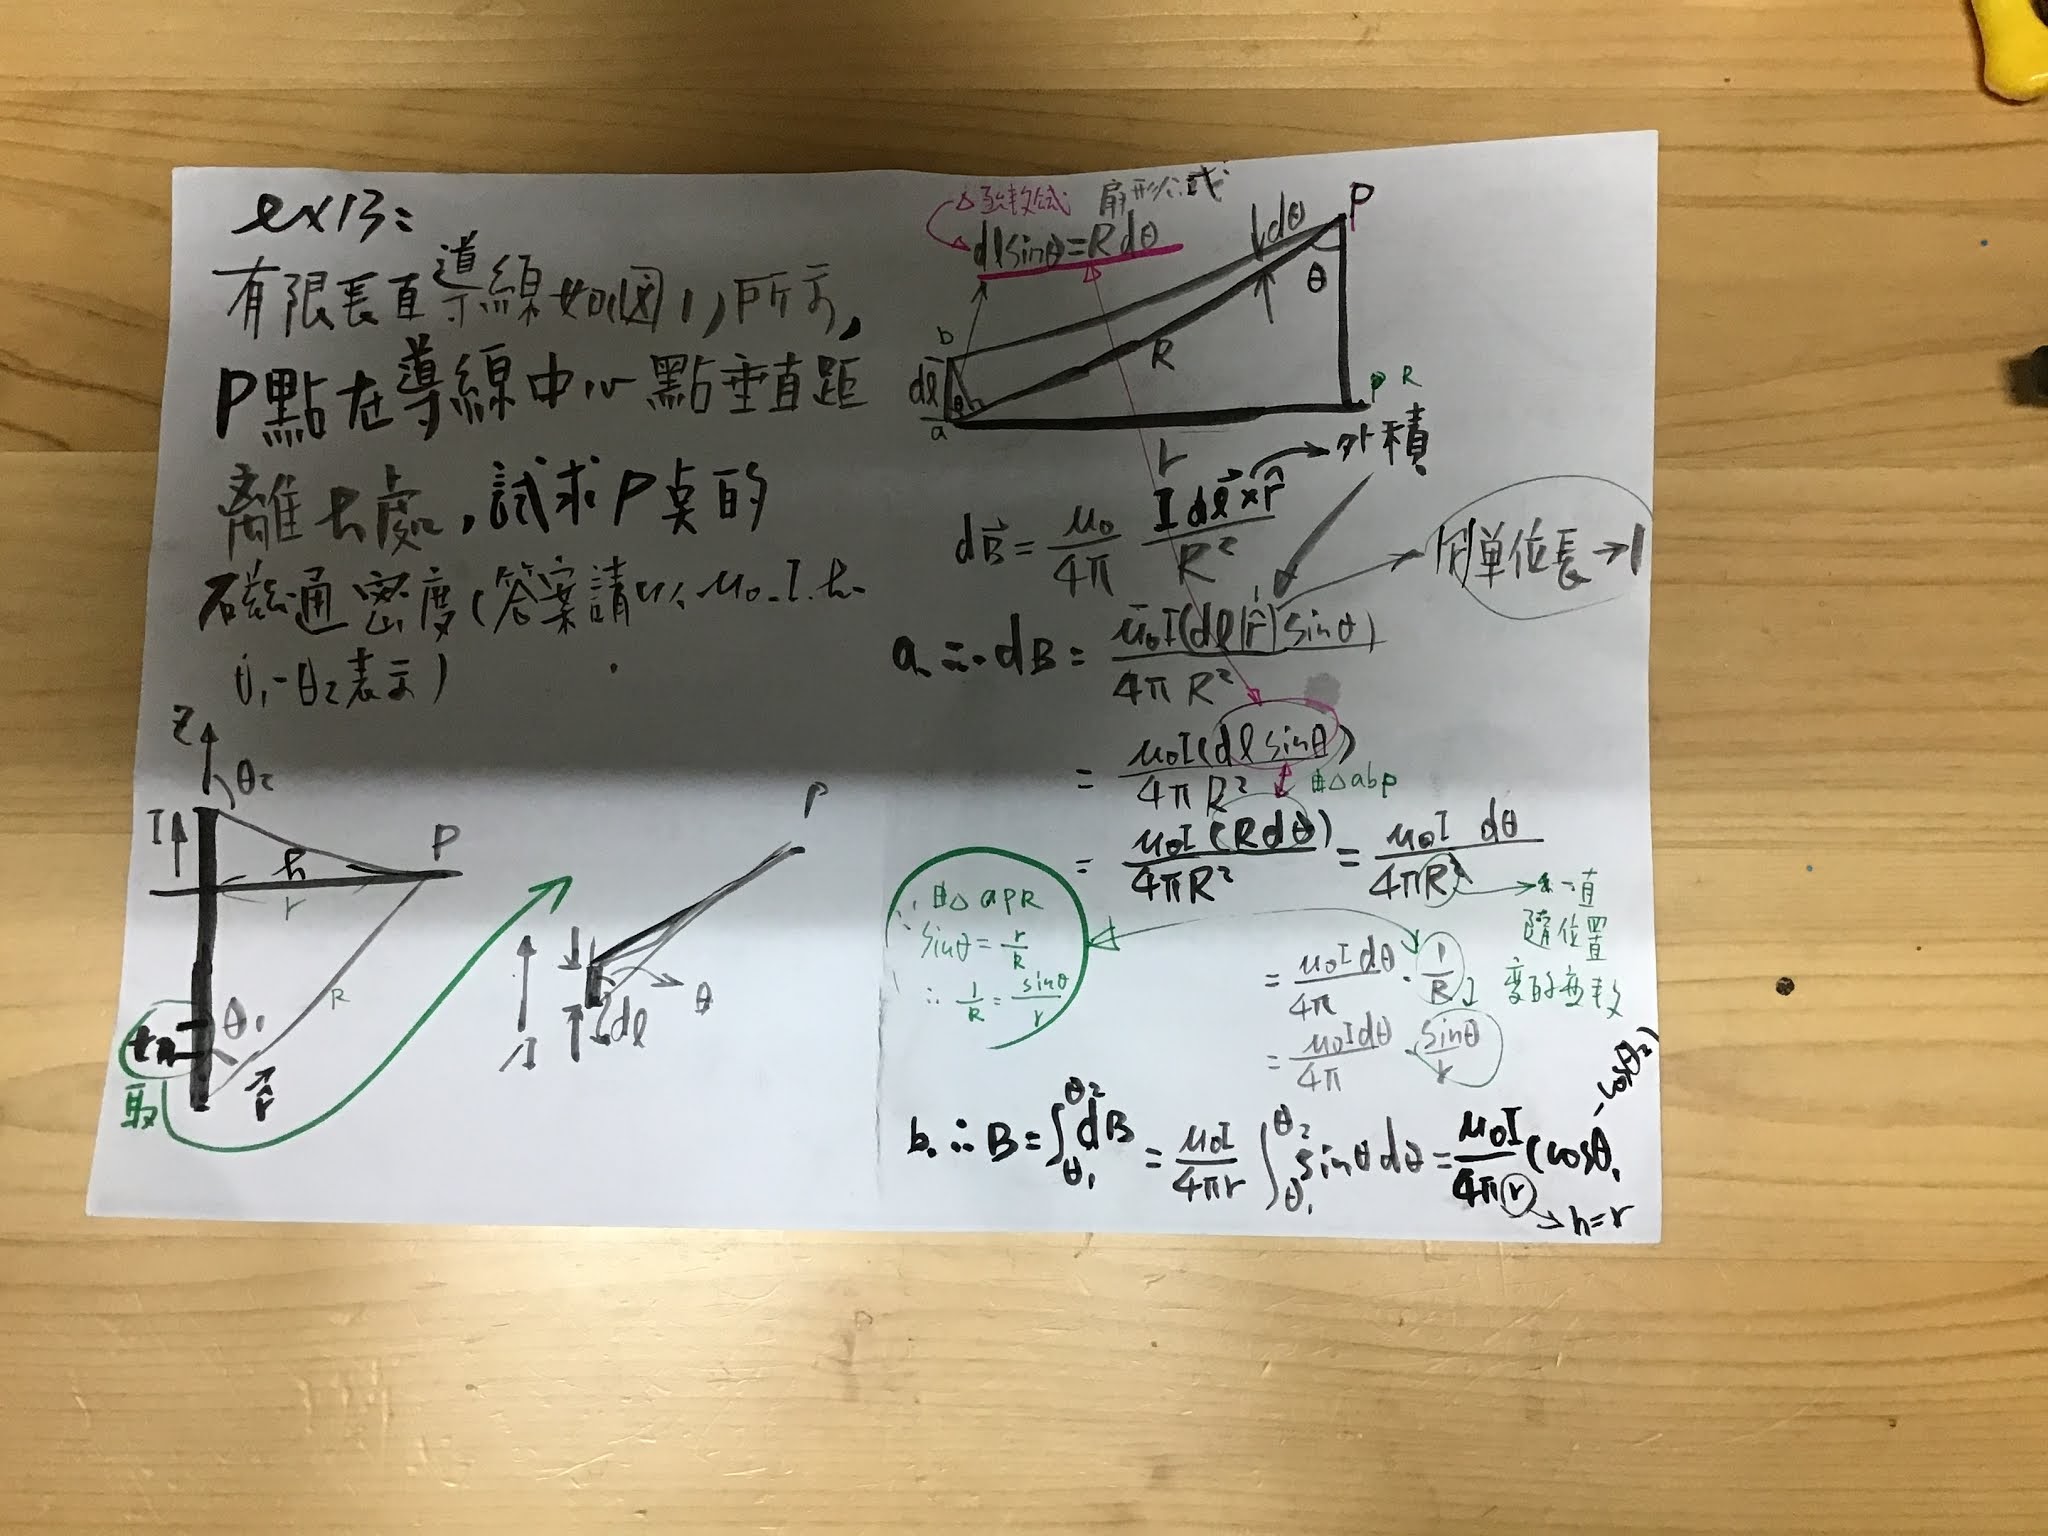 ex13:
有限長直導線如(圖1)所示,
P點在導線中心點垂直距
離h處,試求P点的
磁通密度(答案請以μ₀、I、h、
θ₁-θ₂表示)
Z
θ₂
I
P
h
r
R
θ₁
取
r⃗
P
θ
dℓ
I
扇形公式
dℓsinθ=Rdθ
P
dθ
θ
b
dℓ
R
a
R
r
外積
dB⃗ = μ₀/4π Idℓ⃗×r̂/R²
|r̂|單位長→1
a. ∴dB = μ₀I(dℓ|r̂|sinθ)/4πR²
= μ₀I(dℓsinθ)/4πR²
由△abp
= μ₀I(Rdθ)/4πR² = μ₀I dθ/4πR
一直
隨位置
變的变数
由△apR
∵sinθ=r/R
∴1/R=sinθ/r
= μ₀Idθ/4π · 1/R
= μ₀Idθ/4π · sinθ/r
b. ∴B=∫θ₁θ₂ dB = μ₀I/4πr ∫θ₁θ₂ sinθdθ = μ₀I/4πr (cosθ₁-cosθ₂)
h=r